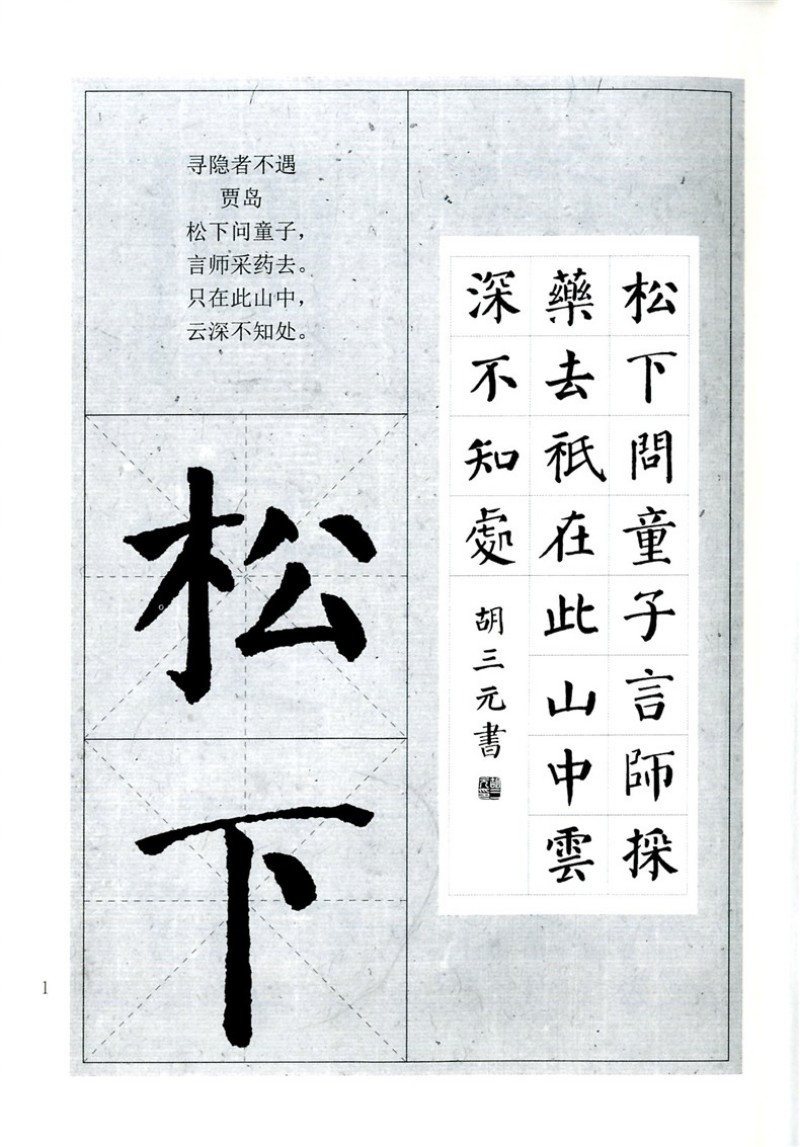 寻隐者不遇
贾岛
松下问童子，
言师采药去。
只在此山中，
云深不知处。
松下問童子言師採
藥去祇在此山中雲
深不知處
胡三元書
松
下
1